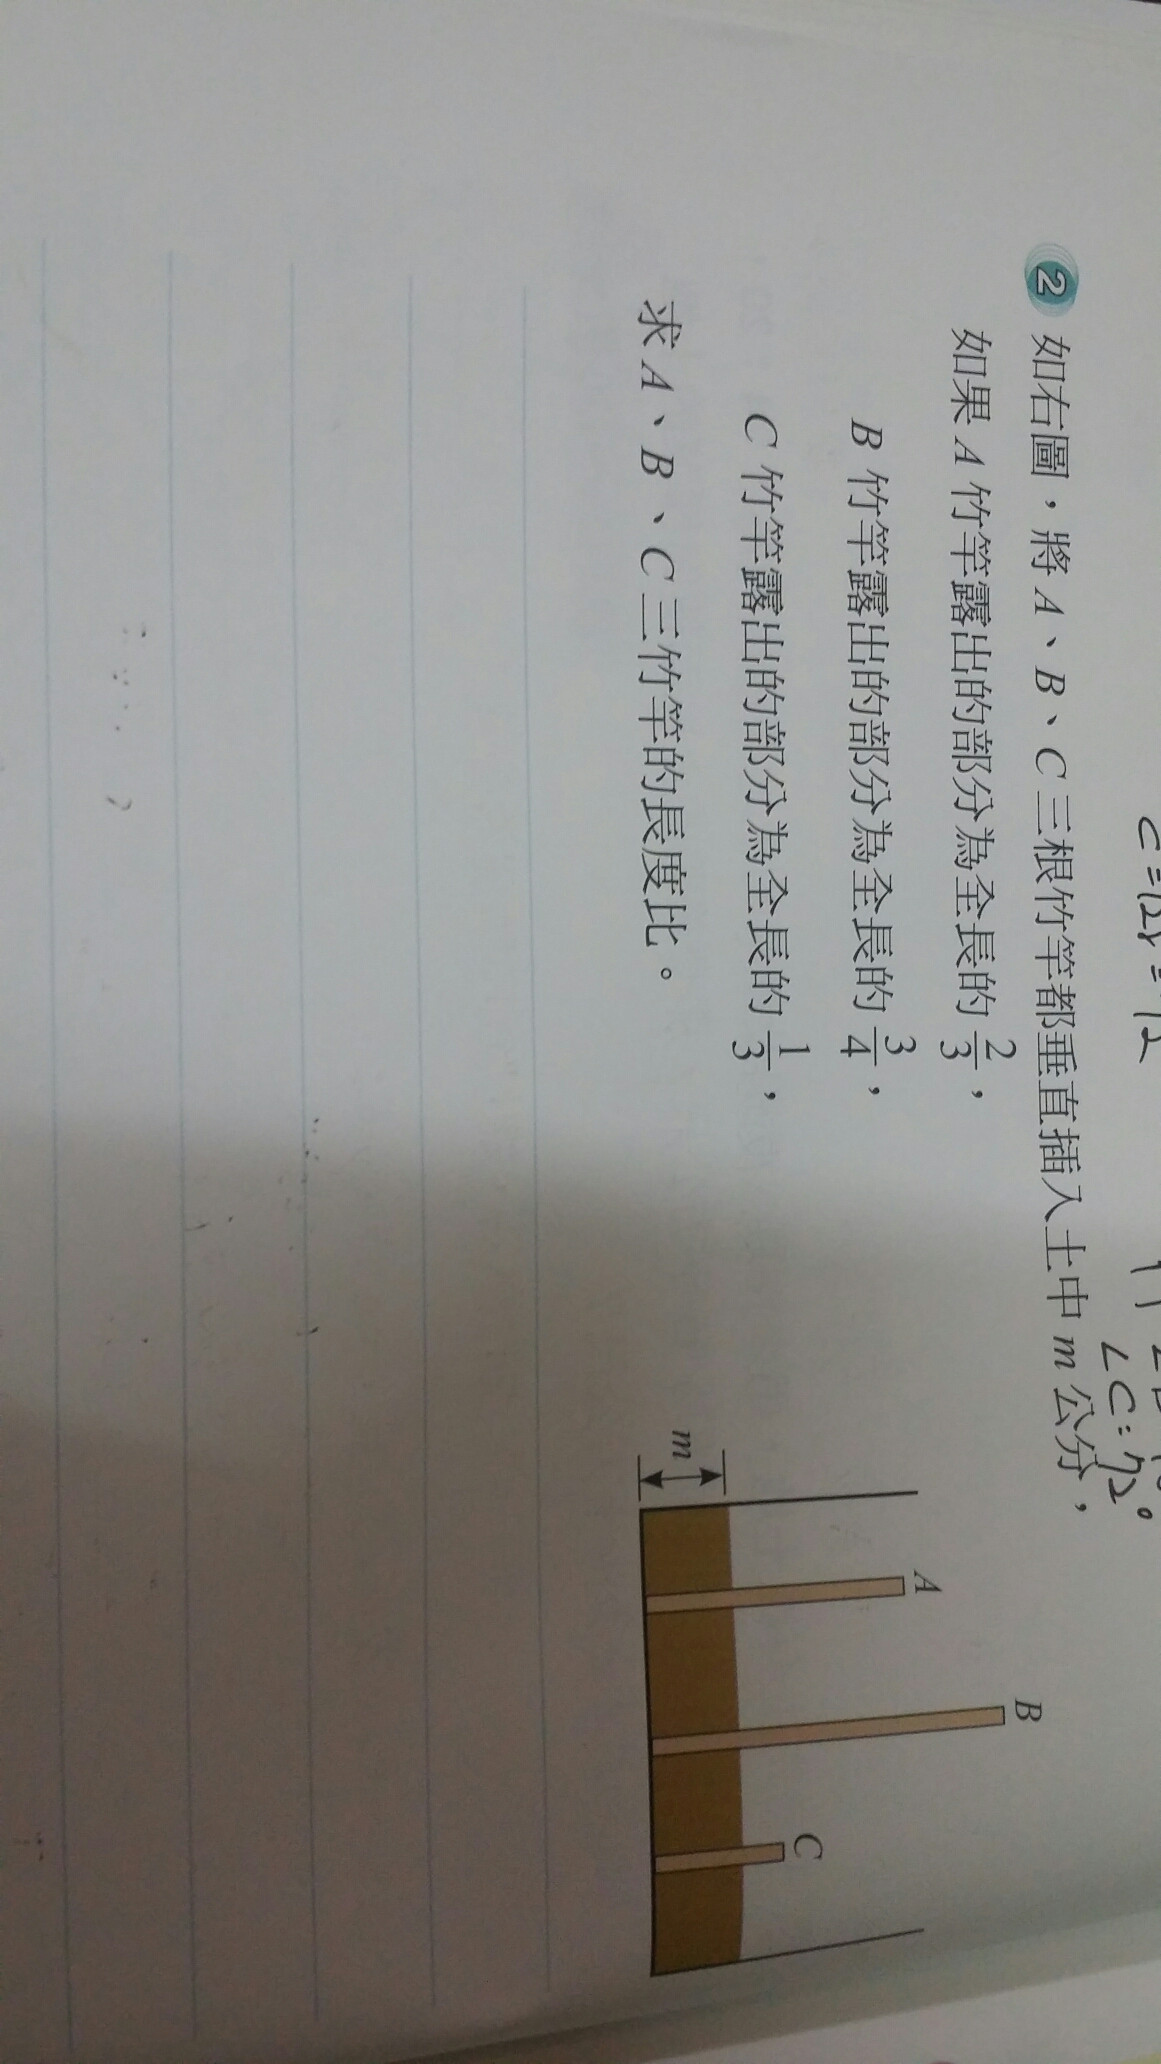 2 如右圖，將 A、B、C 三根竹竿都垂直插入土中 m 公分，
如果 A 竹竿露出的部分為全長的 2/3，
B 竹竿露出的部分為全長的 3/4，
C 竹竿露出的部分為全長的 1/3，
求 A、B、C 三竹竿的長度比。
m
A
B
C
∠C=72°